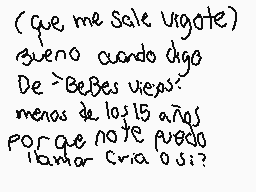 (que me sale vigote)
Bueno cuando digo
De "BeBes viejos":
menos de los 15 años
porque no te puedo
llamar cria o si?